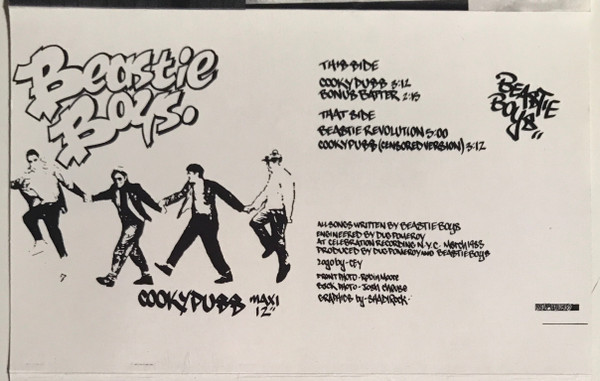 Beastie
Boys.
COOKY PUSS MAXI
12"
THIS SIDE
COOKY PUSS 3:12
BONUS BATTER 2:15
THAT SIDE
BEASTIE REVOLUTION 5:00
COOKY PUSS (CENSORED VERSION) 3:12
BEASTIE
BOYS
ALL SONGS WRITTEN BY BEASTIE BOYS
ENGINEERED BY DUG POMEROY
AT CELEBRATION RECORDING N.Y.C. March 1983
PRODUCED BY DUG POMEROY AND BEASTIE BOYS
LOGO by - CEY
FRONT PHOTO - ROBIN MOORE
BACK PHOTO - JOSH
GRAPHICS by - SHADI ROCK